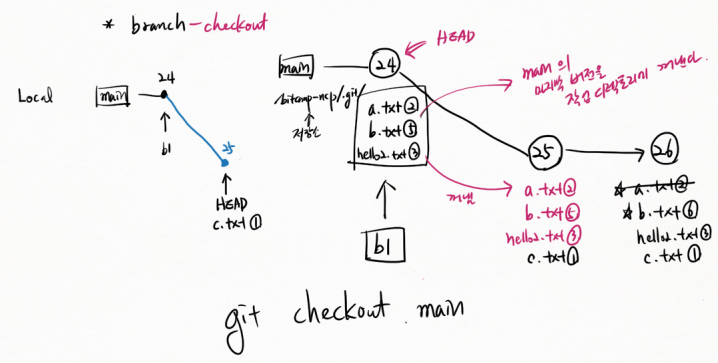 * branch-checkout
Local
main
24
b1
25
HEAD
c.txt ①
main
24
HEAD
/bitcamp-ncp/.git/
저장소
a.txt ②
b.txt ⑤
hello2.txt ③
b1
main의
마지막 버전을
작업 디렉토리에 꺼낸다.
꺼냄
25
a.txt ②
b.txt ⑤
hello2.txt ③
c.txt ①
26
★ a.txt ②
★ b.txt ⑥
hello2.txt ③
c.txt ①
git checkout main